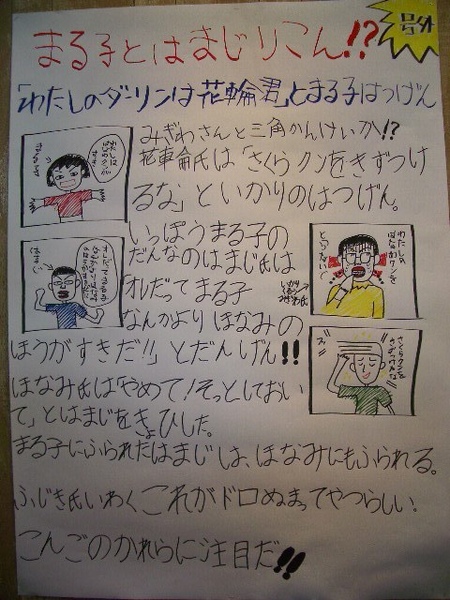 号外
まる子とはまじりこん!?
「わたしのダーリンは花輪君」とまる子はつげん
みぎわさんと三角かんけいか!?
花輪氏は「さくらクンをきずつけ
るな」といかりのはつげん。
いっぽうまる子の
だんなのはまじ氏は
オレだってまる子
なんかよりほなみの
ほうがすきだ!!」とだんげん!!
ほなみ氏はやめて!そっとしておい
て」とはまじをきょひした。
まる子にふられたはまじは、ほなみにもふられる。
ふじき氏いわくこれがドロぬまってやつらしい。
こんごのかれらに注目だ!!
わたしの
はなわクンを
とらないで
さくらクンを